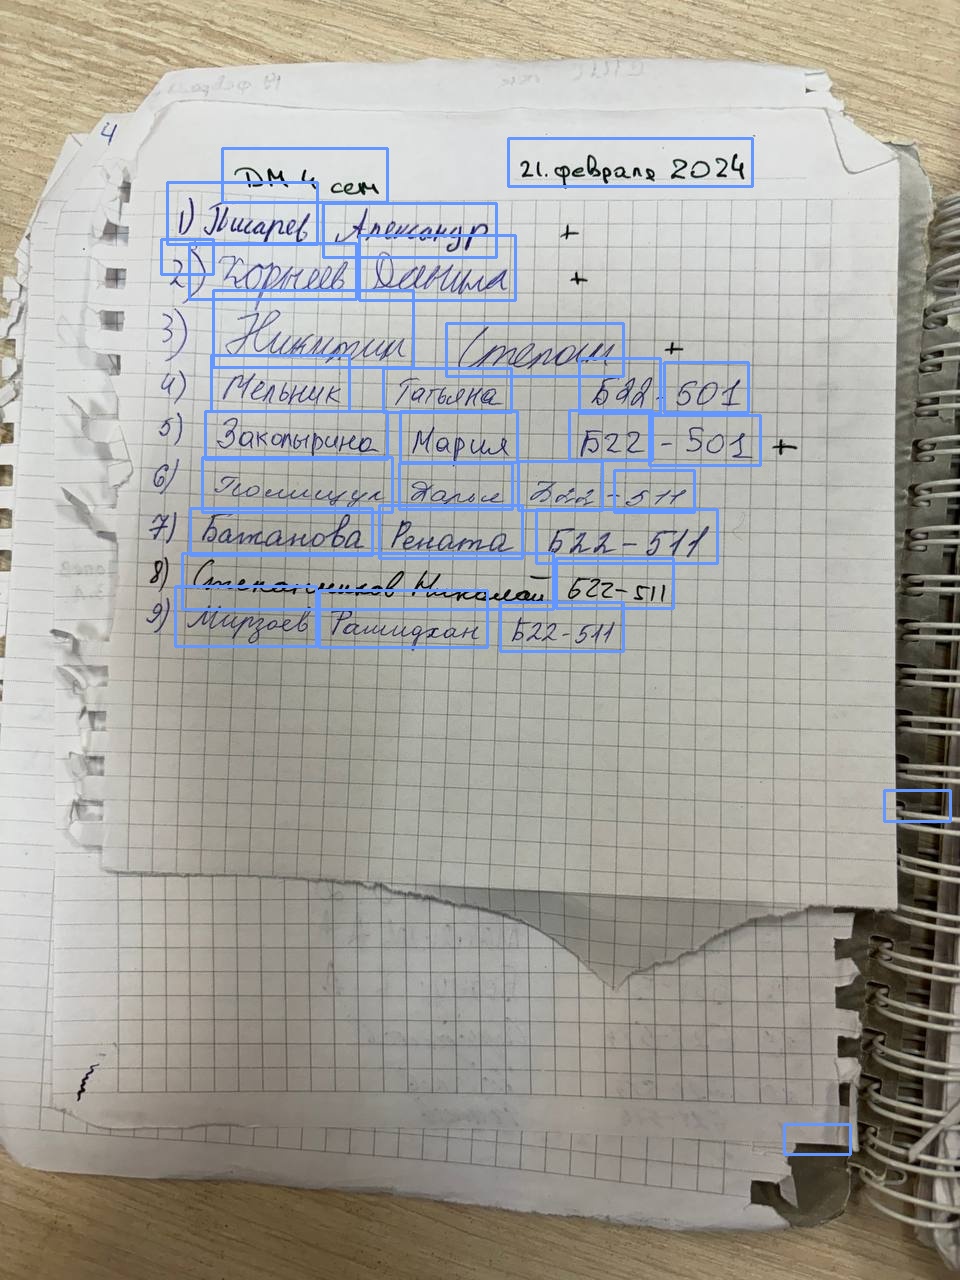 4
ДМ 4 сем 21. февраля 2024
1) Писарев Александр +
2) Корнеев Данила +
3) Никитин Степан +
4) Мельник Татьяна Б22-501
5) Закопырина Мария Б22-501 +
6) Полищук Дарья Б22-511
7) Бажанова Рената Б22-511
8) Николай Б22-511
9) Мирзоев Рашидхан Б22-511